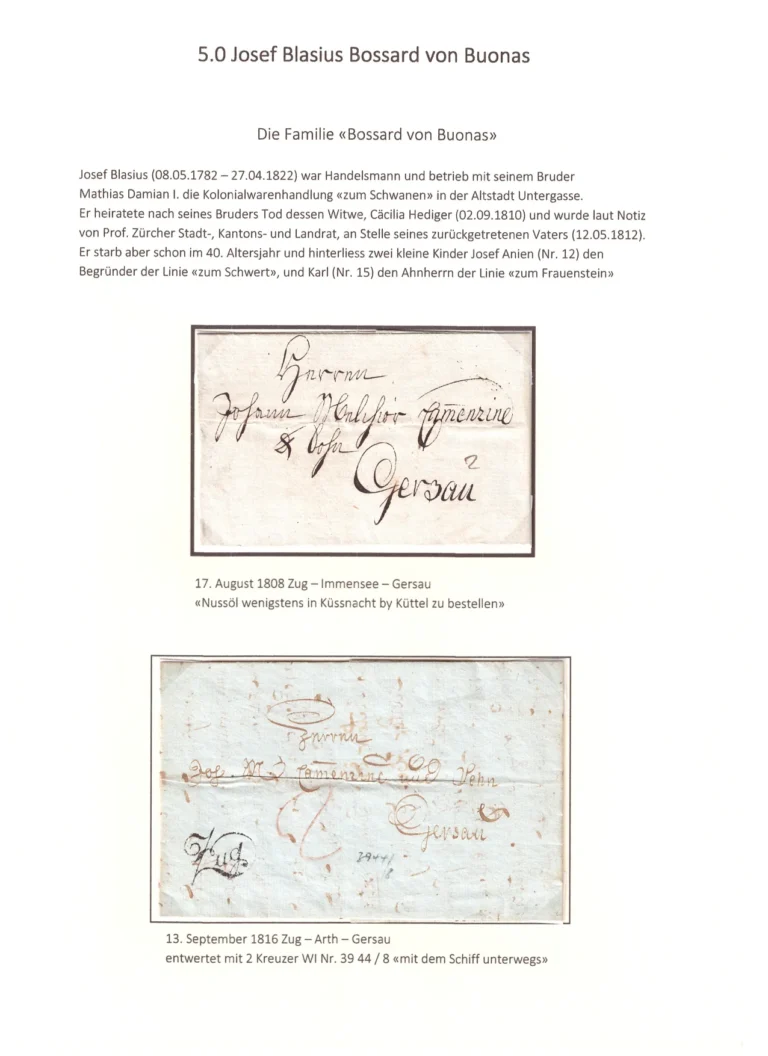 5.0 Josef Blasius Bossard von Buonas
Die Familie «Bossard von Buonas»
Josef Blasius (08.05.1782 – 27.04.1822) war Handelsmann und betrieb mit seinem Bruder
Mathias Damian I. die Kolonialwarenhandlung «zum Schwanen» in der Altstadt Untergasse.
Er heiratete nach seines Bruders Tod dessen Witwe, Cäcilia Hediger (02.09.1810) und wurde laut Notiz
von Prof. Zürcher Stadt-, Kantons- und Landrat, an Stelle seines zurückgetretenen Vaters (12.05.1812).
Er starb aber schon im 40. Altersjahr und hinterliess zwei kleine Kinder Josef Anien (Nr. 12) den
Begründer der Linie «zum Schwert», und Karl (Nr. 15) den Ahnherrn der Linie «zum Frauenstein»
Herren
Johann Melchior Camenzind
& Sohn
Gersau
2
17. August 1808 Zug – Immensee – Gersau
«Nussöl wenigstens in Küssnacht by Küttel zu bestellen»
Herren
Jos. M. Camenzind und Sohn
Gersau
Zug
3944/
8
13. September 1816 Zug – Arth – Gersau
entwertet mit 2 Kreuzer WI Nr. 39 44 / 8 «mit dem Schiff unterwegs»